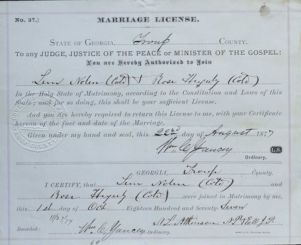 No. 37.
MARRIAGE LICENSE.
STATE OF GEORGIA, Troup COUNTY.
To any JUDGE, JUSTICE OF THE PEACE or MINISTER OF THE GOSPEL:
You are Hereby Authorized to Join
Nolen (Col) & Rose (Col)
In the Holy State of Matrimony, according to the Constitution and Laws of this
State; and for so doing, this shall be your sufficient License.
And you are hereby required to return this License to me, with your Certificate
hereon of the fact and date of the Marriage.
Given under my hand and seal, this 22nd day of August 1877
Wm C Yancey L.S.
Ordinary.
GEORGIA, Troup County.
I CERTIFY, that Nolen (Col) and
Rose (Col) were joined in Matrimony by me,
this 1st day of Oct Eighteen Hundred and Seventy Seven
Recorded Wm C Yancey Ordinary